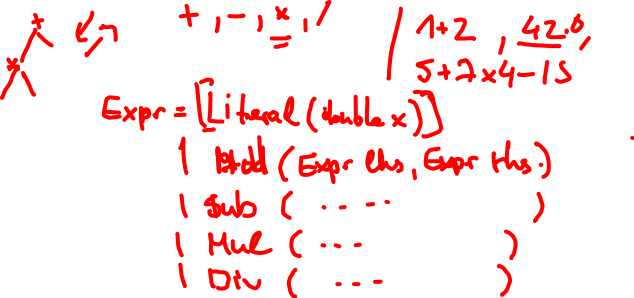 +
*
+ , - , * , /
1+2 , 42.0,
5+7x4-15
Expr = [Literal (double x)]
| Add (Expr lhs, Expr rhs.)
| Sub ( .... )
| Mul ( ... )
| Div ( ... )